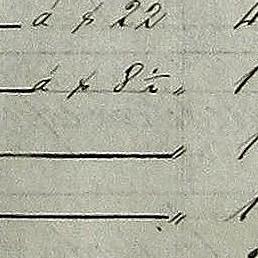 á 22 4
á 8½ " 1
" 1
" 1